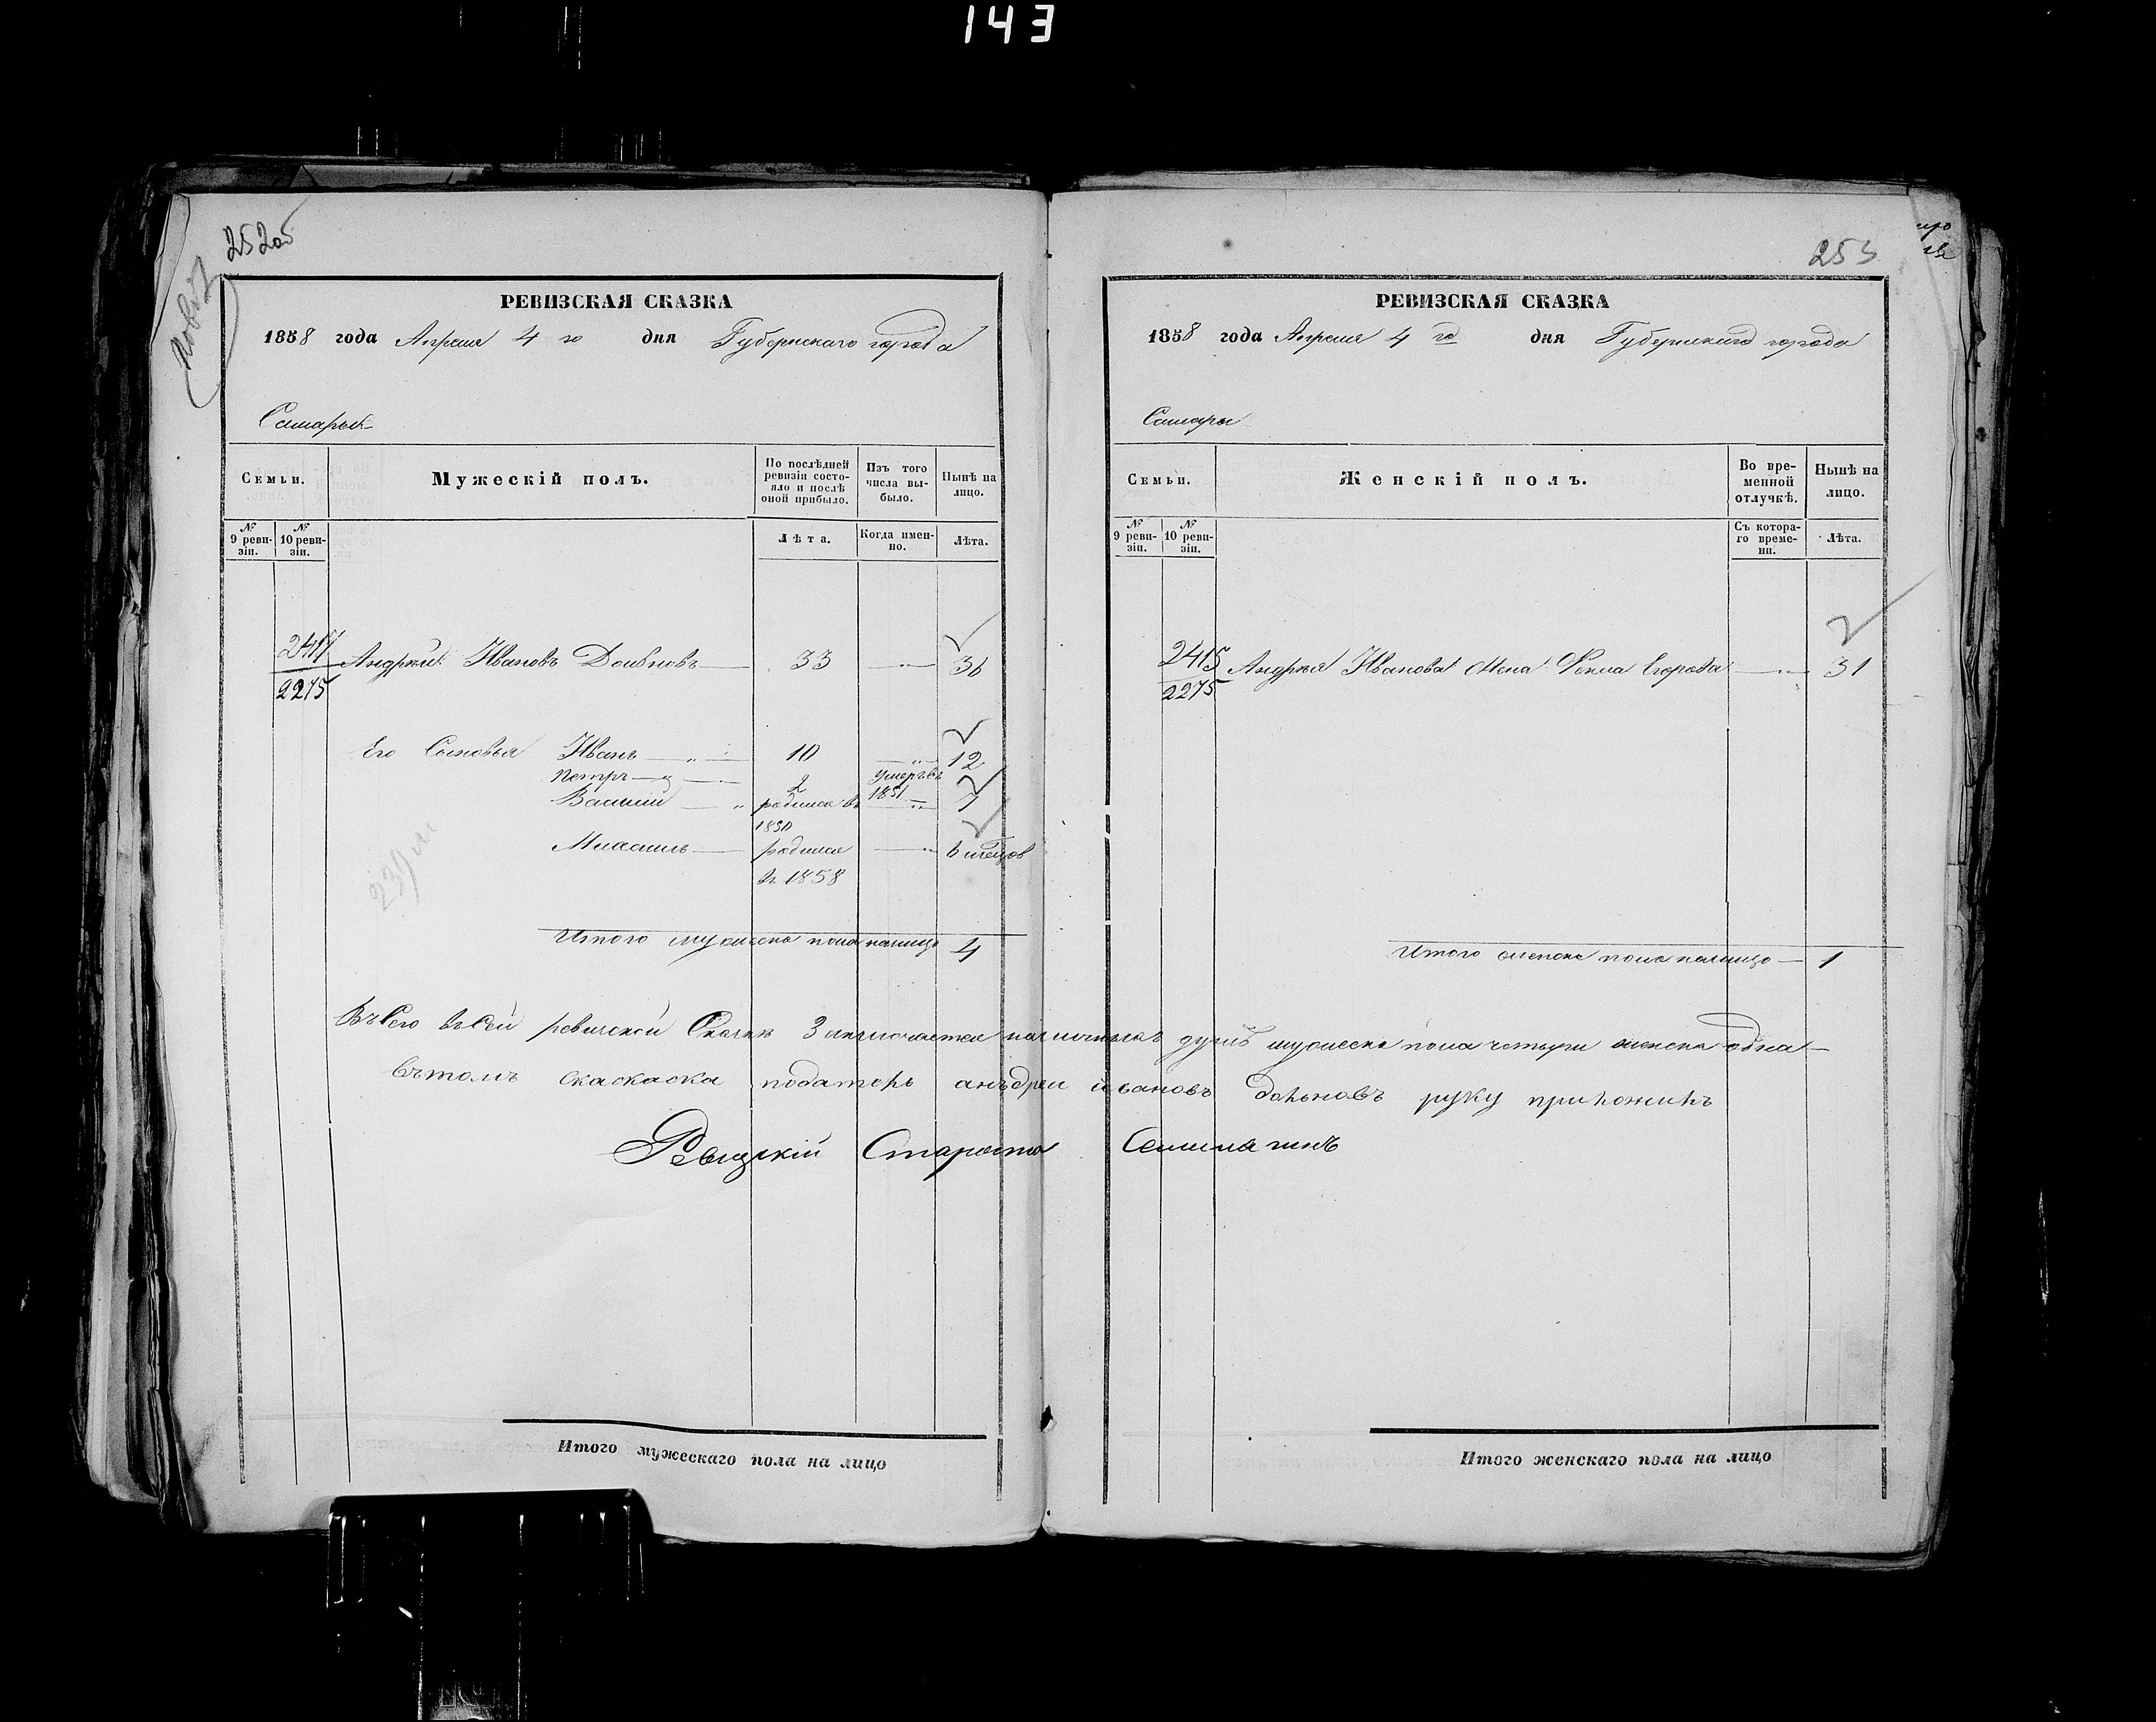 143
252об
РЕВИЗСКАЯ СКАЗКА
1858 года Апреля 4 го дня Губернскаго города
Самары
Семьи.
Мужескій полъ.
По послѣдней ревизіи состояло и послѣ оной прибыло.
Изъ того числа выбыло.
Нынѣ на лицо.
№ 9 ревизіи.
№ 10 ревизіи.
Лѣта.
Когда именно.
Лѣта.
2275
Андрей Ивановъ 33
Его Сыновья Иванъ 10 12
Петръ 2 умеръ въ 1851
Василий родился въ 1850 7
Михаилъ родился в 1858
Итого мужеска пола налицо 4
Итого мужескаго пола на лицо
253
РЕВИЗСКАЯ СКАЗКА
1858 года Апреля 4 го дня Губернскаго города
Самары
Семьи.
Женскій полъ.
Во временной отлучкѣ.
Нынѣ на лицо.
№ 9 ревизіи.
№ 10 ревизіи.
Съ котораго времени.
Лѣта.
2415
2275
Андрея Иванова жена Фекла Егорова 31
Итого женска пола налицо 1
Всего в сей ревиской Скаске Заключается наличныхъ душъ мужеска пола четыри женска одна
Вътомъ скаскаска податель анъдреи ивановъ руку приложилъ
Ревизскій Староста
Итого женскаго пола на лицо